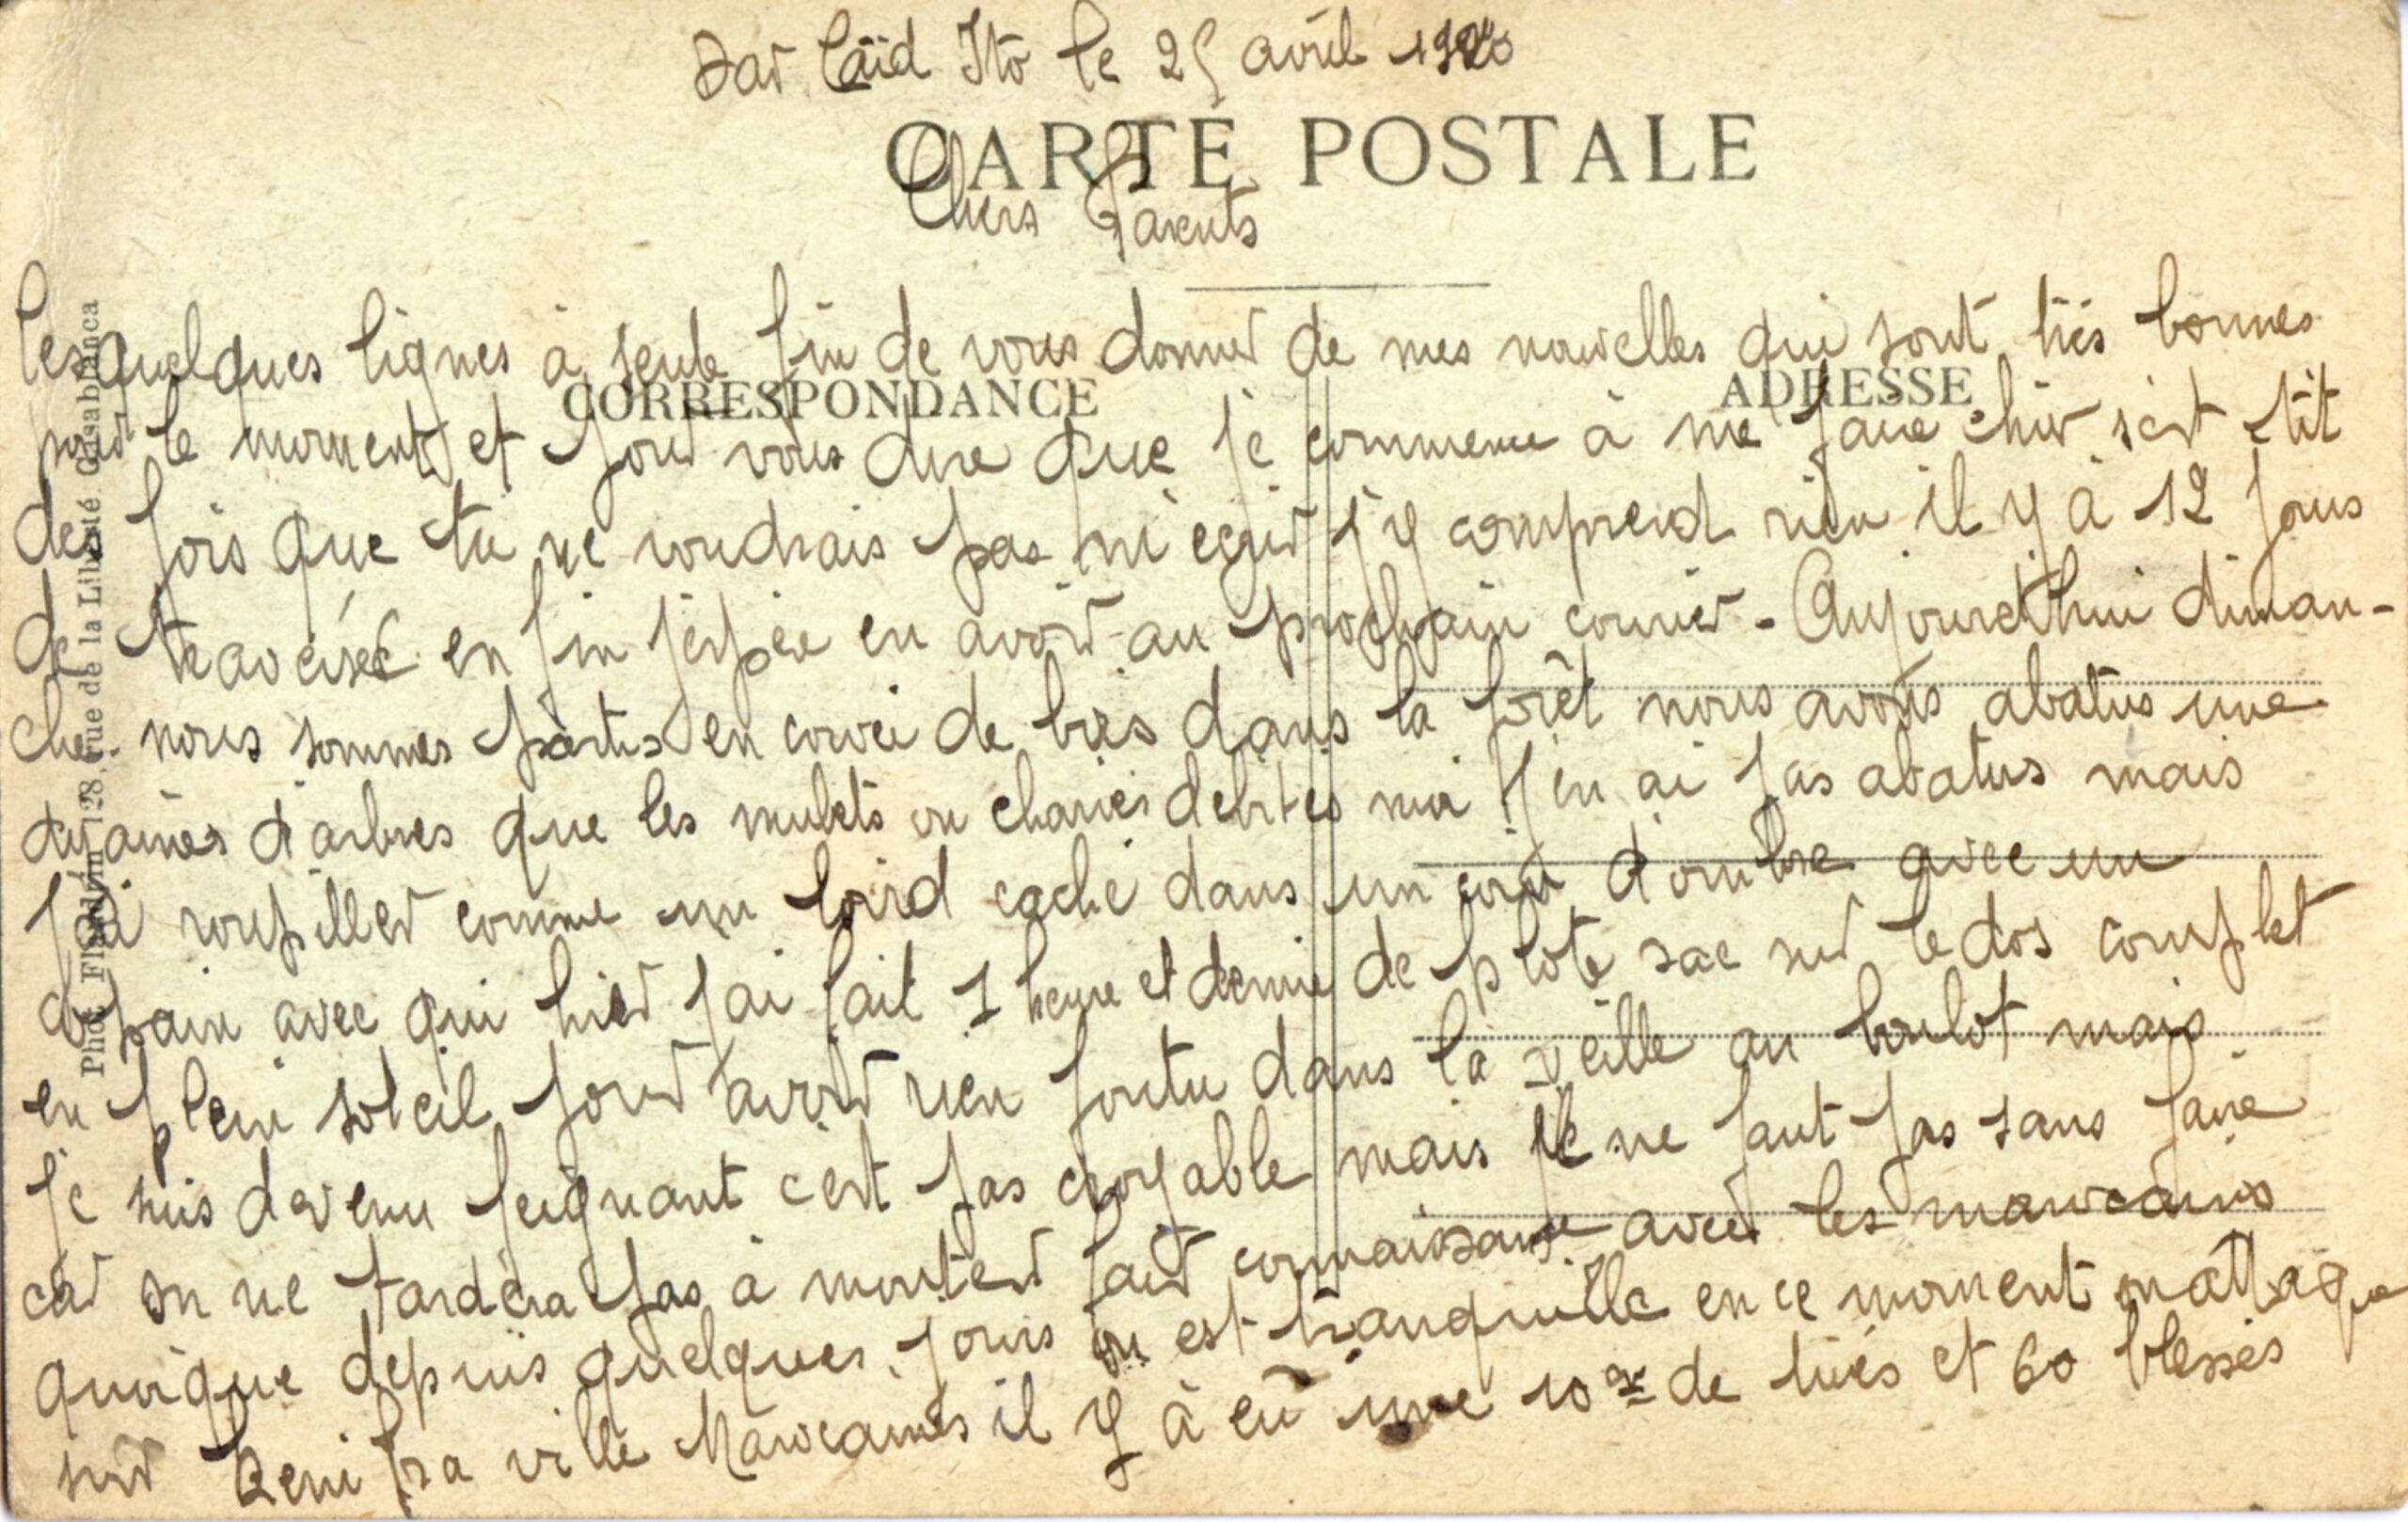 Dar Caïd Ito le 25 avril 1920
CARTE POSTALE
Chers Parents
Ces quelques lignes à seule fin de vous donner de mes nouvelles qui sont très bonnes
CORRESPONDANCE
ADRESSE
pour le moment et pour vous dire que je commence à me faire chier s'est
des fois que tu ne voudrais pas m'ecrir j'y comprend rien il y à 12 jours
de traversée en fin j'espère en avoir au prochain courrier - Aujourd'hui diman-
che nous sommes partis en corvée de bois dans la forêt nous avons abatus une
dizaines d'arbres que les mulets on charriés debités moi j'en ai pas abatus mais
j'ai roupiller comme un loird caché dans un coin d'ombre avec un
copain avec qui hier j'ai fait 1 heure et demie de plote sac sur le dos complet
en plein soleil pour avoir rien foutu dans la veille au boulot mais
je suis devenu feignant c'est pas croyable mais il ne faut pas sans faire
car on ne tardera pas à monter faire connaissance avec les marocains
quoique depuis quelques jours on est tranquille en ce moment on attaque
sur Kenifra ville Marocaines il y à eu une 10ne de tués et 60 blessés
Phot. Flandrin 128, rue de la Liberté Casablanca